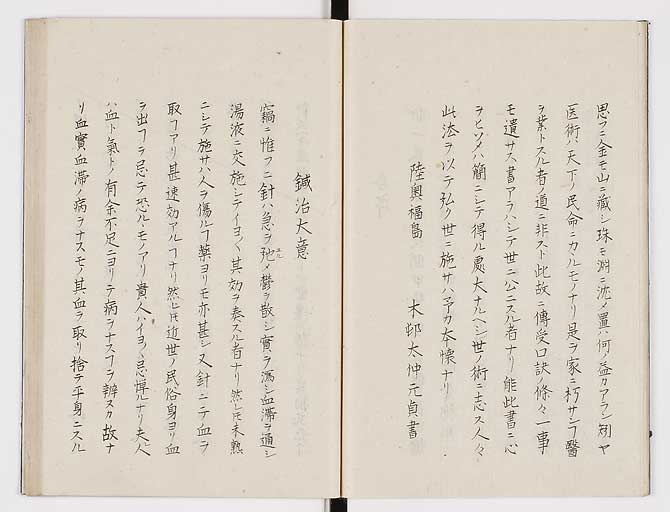 思フニ金モ山ニ藏シ珠モ淵ニ沈メ置ハ何ノ益カアラン矧ヤ
医術ハ天下ノ民命ニカルモノナリ是ヲ家ニ朽サンフ醫
ヲ業トスル者ノ道ニ非スト此故ニ傳受口訣ノ條々一事
モ遺サス書アラハシテ世ニ公ニスル者ナリ能此書ニ心
ヲヒソメハ簡ニシテ得ル處大ナルヘシ世ノ術ニ志ス人々
此法ヲ以テ弘ク世ニ施サハ予カ本懐ナリ
陸奥福島　木邨太仲元貞書
鍼治大意
竊ニ惟フニ針ハ急ヲ弛メ鬱ヲ散シ實ヲ瀉シ血滞ヲ通シ
湯液ニ交施シテイヨ〱其効ヲ奏スル者ナリ然レ𪜈未熟
ニシテ施サハ人ヲ傷ルヿ藥ヨリモ亦甚シ又針ニテ血ヲ
取ヿアリ甚速効アルヿナリ然レ𪜈近世ノ民俗身ヨリ血
ヲ出ヿヲ忌テ恐ルヽモノアリ貴人ハイヨ〱忌憚ルナリ夫人
ハ血ト氣トノ有余不足ニヨリテ病ヲナスヿヲ辨スカ故ナ
リ血實血滞ノ病ヲナスモノ其血ヲ取リ捨テ平身ニスル